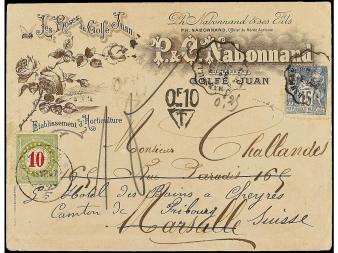 Les Roses du Golfe Juan
Ph. Nabonnand & ses Fils
PH. NABONNAND, Officier du Mérite Agricole
P. & C. Nabonnand
GOLFE-JUAN
Etablissement d'Horticulture
0F10
T
25
10
Monsieur Challandes
16 Rue Paradis 16
Hôtel des Bains à Cheyres
Canton de Fribourg
Marseille Suisse